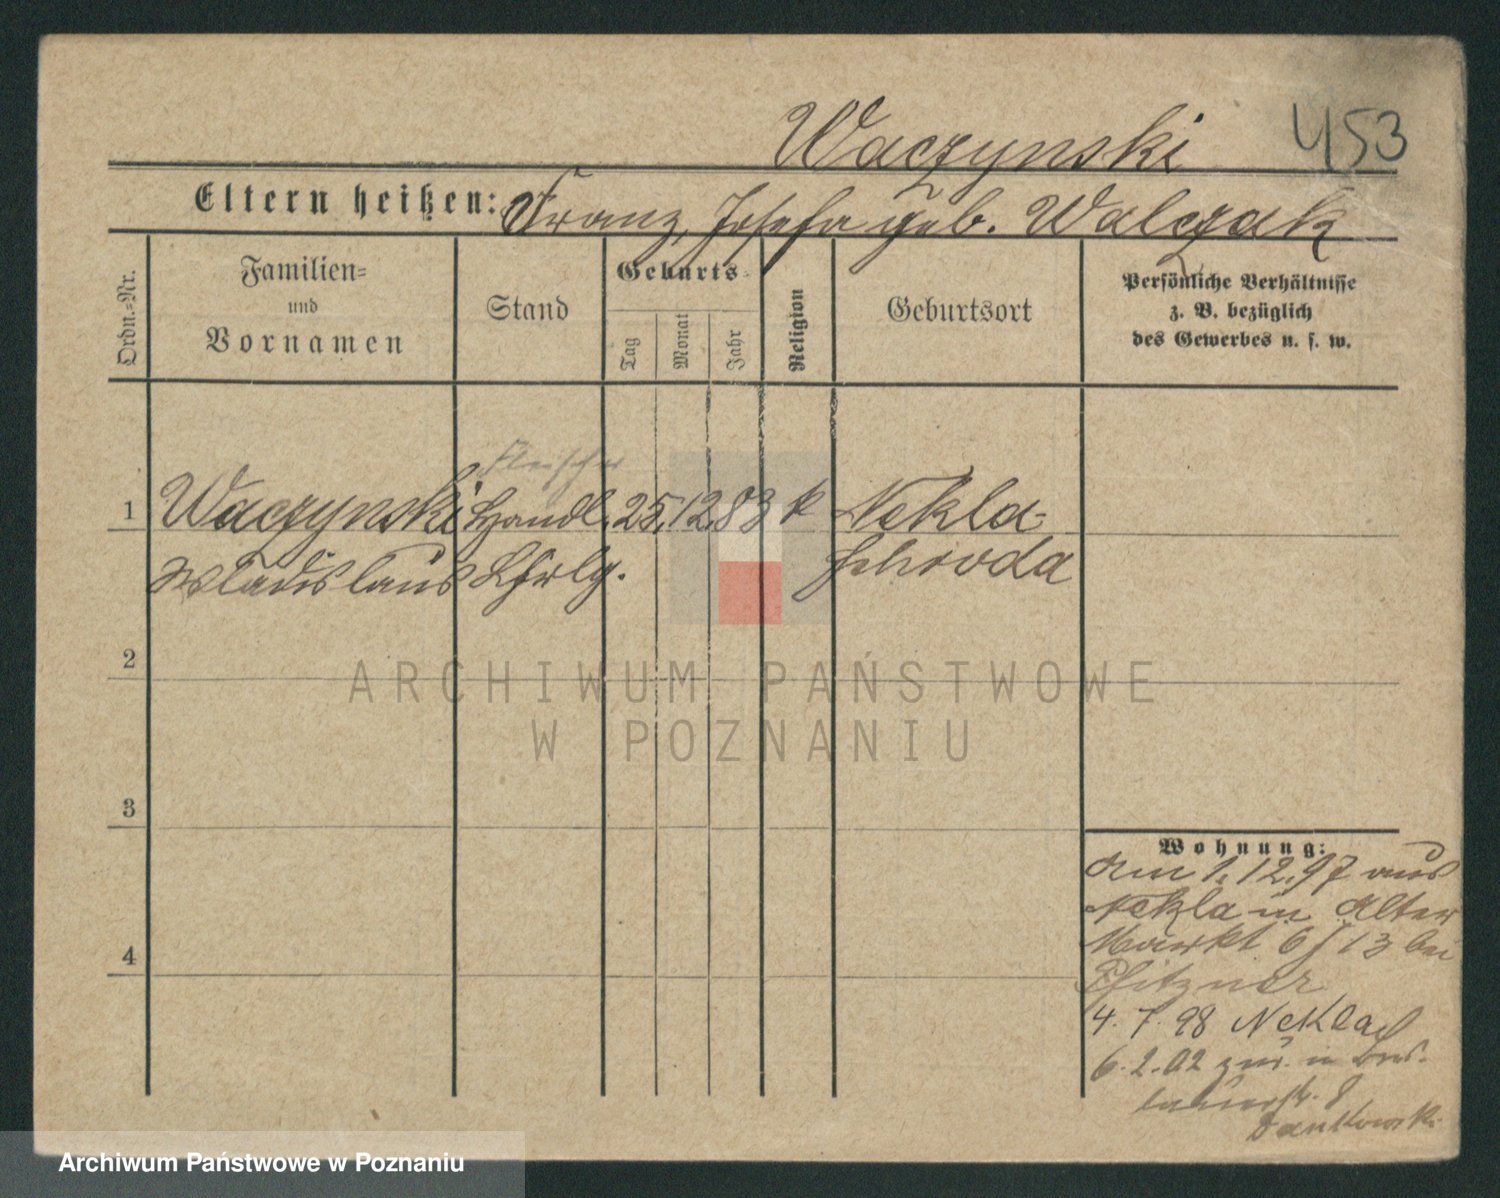 Waczynski 453
Eltern heißen: Franz, Josefa geb. Walczak
Ordn.=Nr.
Familien=
und
Vornamen
Stand
Geburts=
Tag
Monat
Jahr
Religion
Geburtsort
Persönliche Verhältnisse
z. B. bezüglich
des Gewerbes u. s. w.
Fleischer
1 Waczynski Handl. 25. 12. 83 k Nekla
Wladislaus Lhrlg. Schroda
2
ARCHIWUM PAŃSTWOWE
W POZNANIU
3
Wohnung:
Am 1. 12. 97 aus
Nekla in Alter
Markt 6/13 bei
Pfitzner
4. 7. 98 Nekla
6. 2. 02 zur. in
8
Dankowski
4
Archiwum Państwowe w Poznaniu